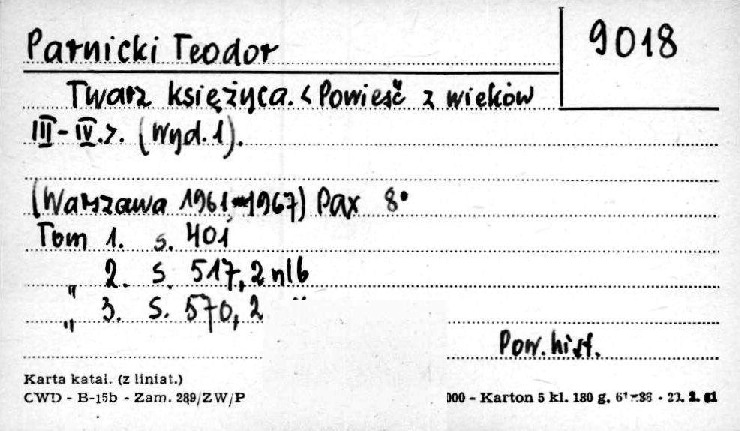 Parnicki Teodor
9018
Twarz księżyca. < Powieść z wieków
III - IV. >. (Wyd. 1).
(Warszawa 1961-1967) Pax 8°
Tom 1. s. 401
„ 2. s. 517, 2 nlb
„ 3. s. 570, 2 "
Pow. hist.
Karta katal. (z liniat.)
CWD - B-15b - Zam. 289/ZW/P
000 - Karton 5 kl. 180 g.